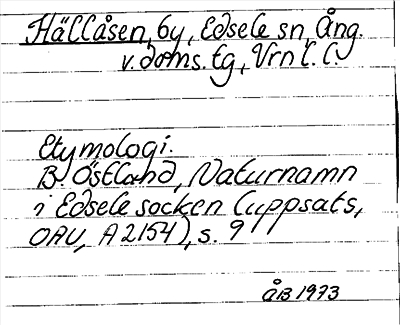 Hällåsen, by, Edsele sn, Ång.
v. doms. tg, Vrn l. l.
Etymologi.
B. Östlund, Naturnamn
i Edsele socken (uppsats,
OAU, A 2154), s. 9
ÅB 1973